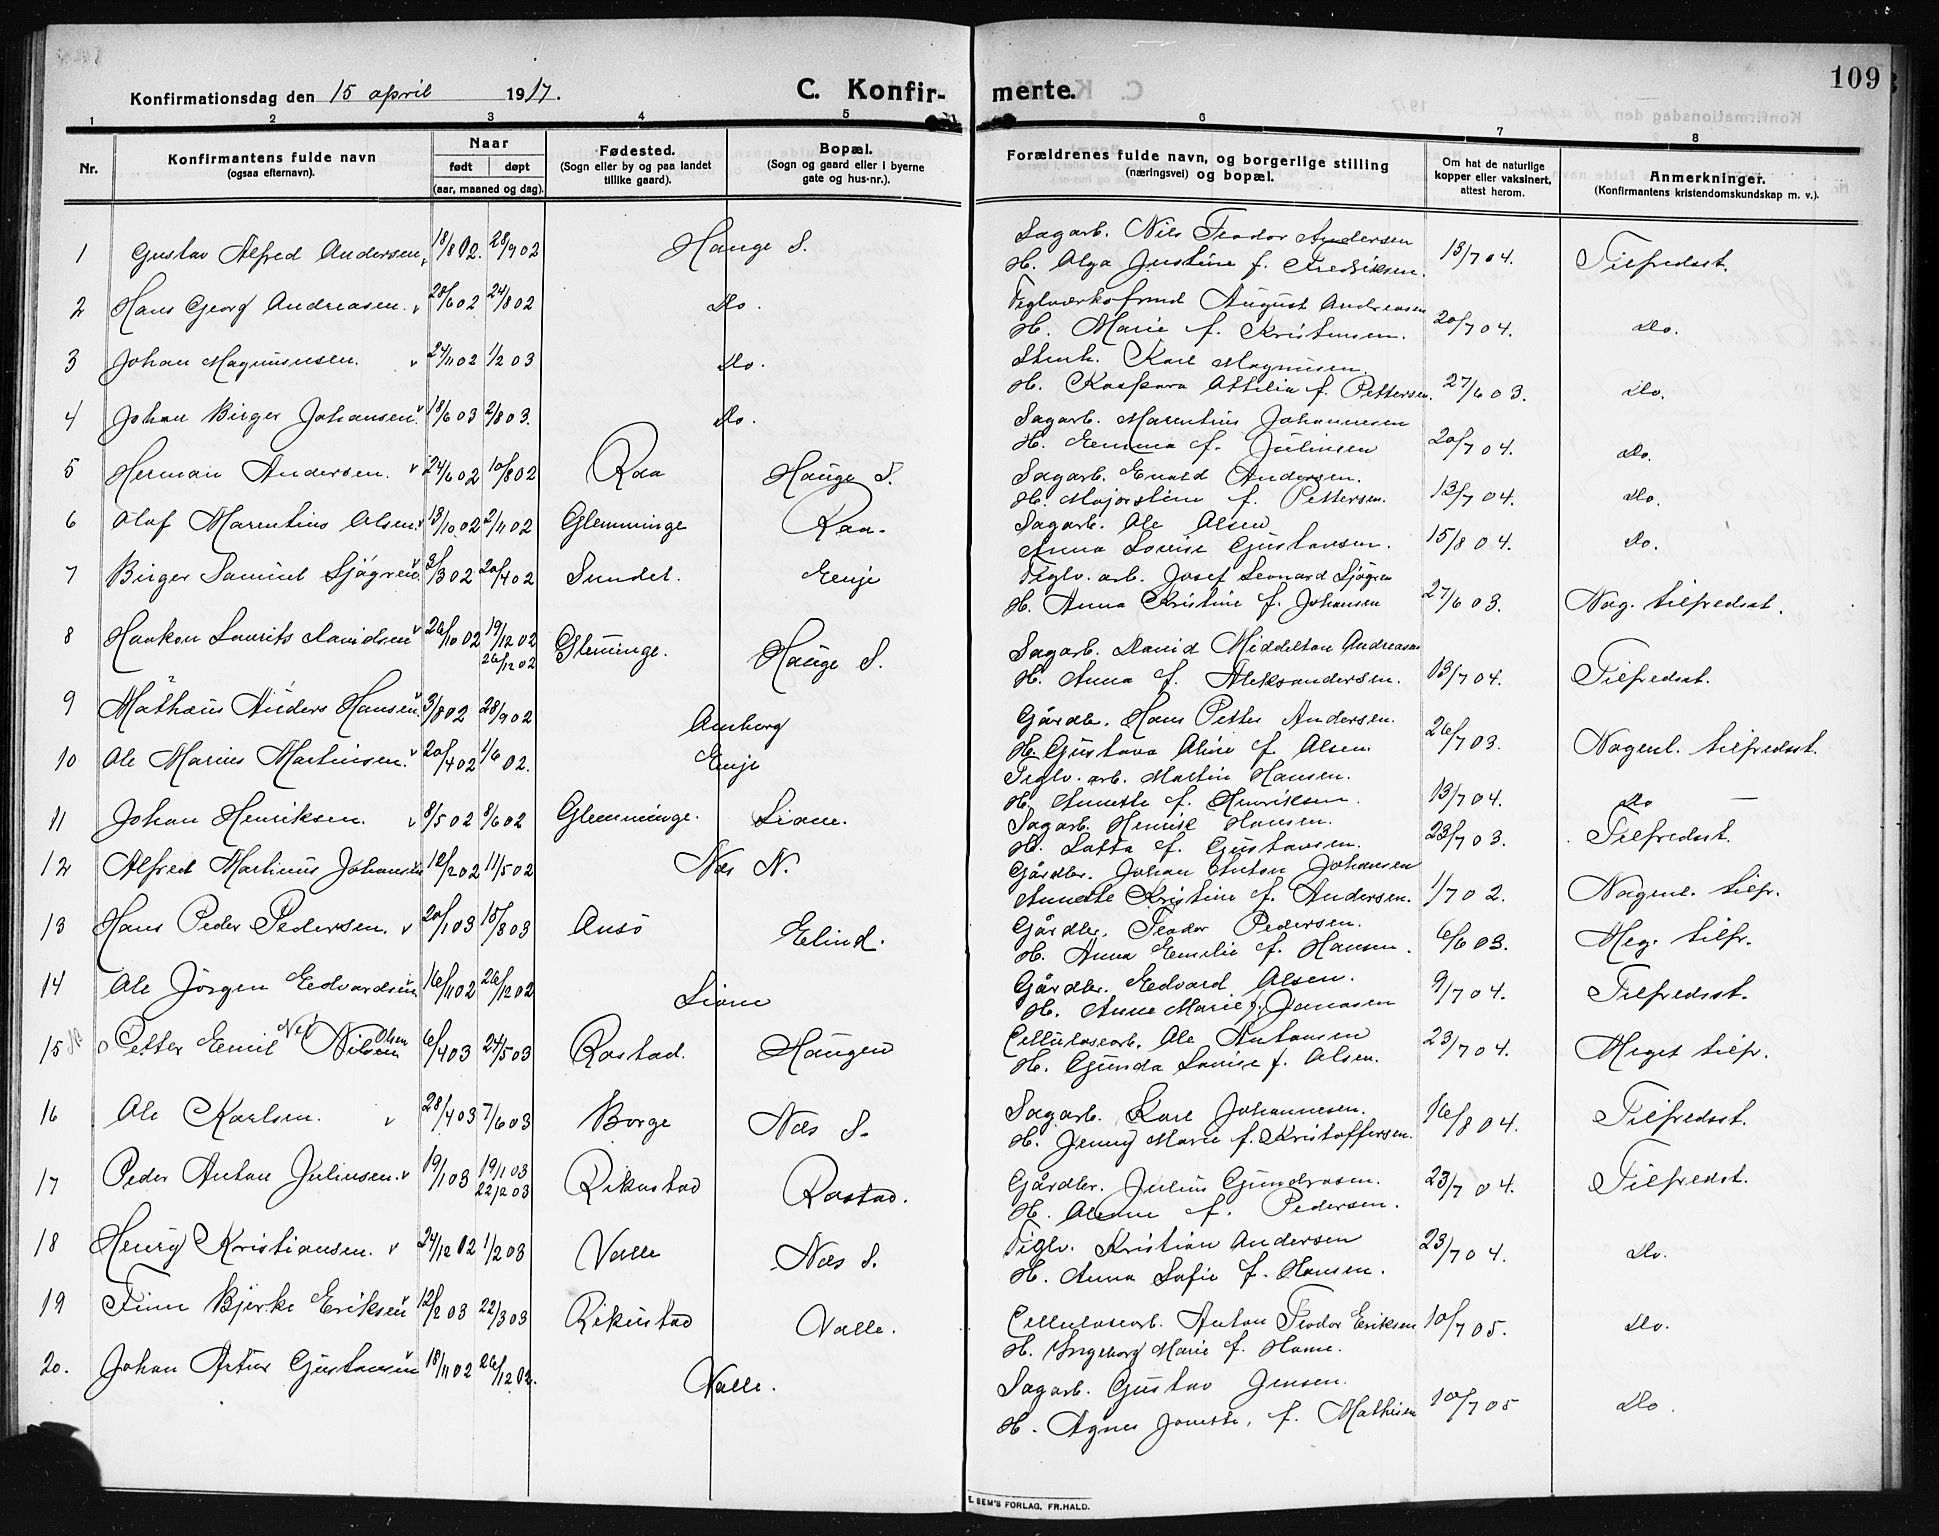 109
Konfirmationsdag den 15 april 1917.
C. Konfirmerte.
1 2 3 4 5 6 7 8
Nr.
Konfirmantens fulde navn
(ogsaa efternavn).
Naar
født døpt
(aar, maaned og dag).
Fødested.
(Sogn eller by og paa landet
tillike gaard).
Bopæl.
(Sogn og gaard eller i byerne
gate og hus-nr.).
Forældrenes fulde navn, og borgerlige stilling
(næringsvei) og bopæl.
Om hat de naturlige
kopper eller vaksinert,
attest herom.
Anmerkninger.
(Konfirmantens kristendomskundskap m. v.).
1 Gustav Alfred Andersen 18/8 02. 28/9 02 Hauge S. Sagarb. Nils Teodor Andersen 13/7 04. Tilfredsst.
H. Olga Justine f. Fredriksen.
2 Hans Georg Andreasen. 28/6 02 24/8 02 Do. Teglverksformd August Andreasen 20/7 04. Do.
H. Marie f. Kristensen.
3 Johan Magnussen. 24/11 02 1/2 03 Do. Stenh. Karl Magnusen. 27/6 03. Do.
H. Kaspara Attilia f. Pettersen.
4 Johan Birger Johansen 18/6 03 2/8 03. Do. Sagarb. Marentius Johannesen 20/7 04. Do.
H. Emma f. Juliusen
5 Herman Andersen. 24/6 02 10/8 02 Raa Hauge S. Sagarb. Evald Andersen. 13/7 04. Do.
H. Majorstine f. Pettersen.
6 Olaf Marentius Olsen 13/10 02 2/11 02 Glemminge Raa. Sagarb. Ole Olsen 15/8 04. Do.
Anna Lovise Gustavsen.
7 Birger Samuel Sjögren 3/3 02 20/4 02 Sundet. Enje Teglv. arb. Josef Leonard Sjögren 27/6 03. Nog. tilfredsst.
H. Anna Kristine f. Johansen
8 Haakon Laurits Davidsen 26/10 02 19/12 02 Glemminge. Hauge S. Sagarb. David Middelton Andreasen 13/7 04. Tilfredsst.
26/12 02
H. Anna f. Aleksandersen.
9 Mathæus Anders Hansen 3/8 02 28/9 02 Amborg Gårdbr. Hans Petter Andersen. 26/7 03. Nogenl. tilfredsst.
H. Gustava Aline f. Olsen.
10 Ole Marius Martinsen. 20/4 02 1/6 02. Enje Teglv. arb. Martin Hansen. 13/7 04. Do
H. Annette f. Henriksen.
11 Johan Henriksen. 8/5 02 8/6 02 Glemminge. Liane. Sagarb. Henrik Hansen. 23/7 03. Tilfredsst.
H. Lotta f. Gustavsen.
12 Alfred Martinus Johansen 12/2 02 11/5 02 Næs N. Gårdbr. Johan Anton Johansen 1/7 02. Nogenl. tilfr.
Annette Kristine f. Andersen.
13 Hans Peder Pedersen. 20/1 03 15/8 03 Ansö Elind. Gårdbr. Teodor Pedersen. 6/6 03. Meg. tilfr.
H. Anna Emilie f. Hansen.
14 Ole Jörgen Edvardsen 16/11 02 26/12 02 Liane Gårdbr. Edvard Olsen. 9/7 04. Tilfredsst.
H. Anne Marie f. Jonassen
15 Petter Emil Nilsen Olsen 6/4 03 24/5 03 Rostad. Haugen Cellulosearb. Ole Antonsen 23/7 04. Meget tilfr.
H. Gunda Lovise f. Olsen.
16 Ole Karlsen. 28/4 03 7/6 03 Borge Næs S. Sagarb. Karl Johannesen. 16/8 04. Tilfredsst.
H. Jenny Marie f. Kristoffersen.
17 Peder Anton Juliusen 19/1 03 19/1 03 Rikustad Rostad. Gårdbr. Julius Gundersen. 23/7 04. Tilfredsst.
22/2 03
H. Anne f. Pedersen.
18 Henry Kristiansen. 24/12 02 1/2 03 Valle Næs S. Teglv. Kristian Andersen 23/7 04. Do.
H. Anna Sofie f. Hansen.
19 Finn Bjerke Eriksen 12/2 03 22/3 03 Rikustad Valle. Cellulosearb. Anton Teodor Eriksen 10/7 05. Do.
H. Ingeborg Marie f. Hanne.
20. Johan Artur Gustavsen 18/11 02 26/12 02. Valle. Sagarb. Gustav Jensen. 10/7 05 Do.
H. Agnes Janette, f. Mathisen
E. SEM'S FORLAG, FR.HALD.